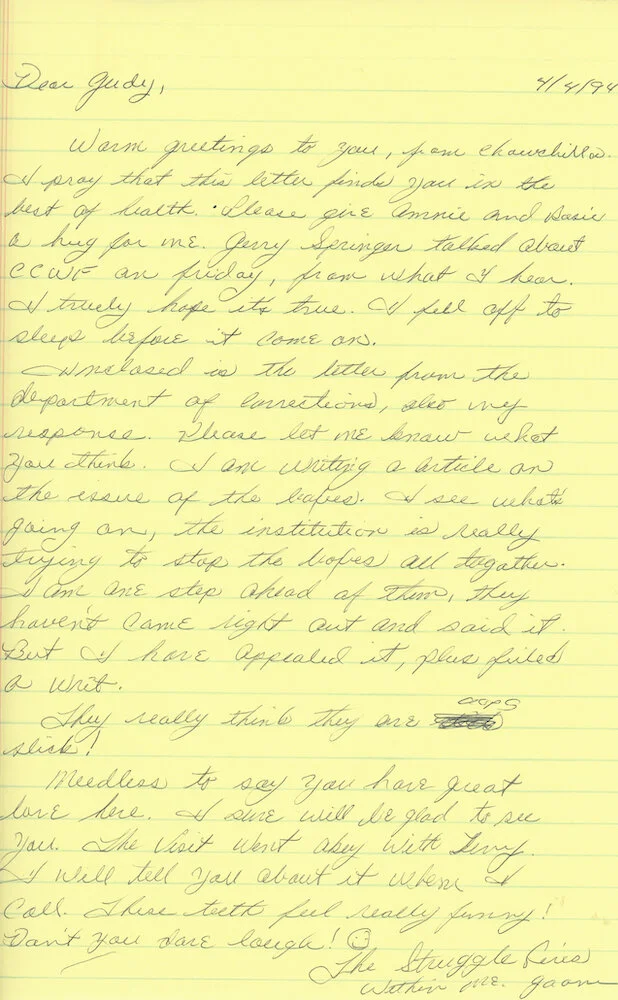 Dear Judy,
4/4/94
Warm greetings to you, from Chowchilla.
I pray that this letter finds you in the
best of health. Please give Annie and
a hug for me. Jerry Springer talked about
CCWF on friday, from what I hear.
I truely hope its true. I fell off to
sleep before it come on.
Inclosed is the letter from the
department of corrections, also my
response. Please let me know what
you think. I am writing a article on
the issue of the boxes. I see what's
going on, the institution is really
trying to stop the boxes all together.
I am one step ahead of them, they
haven't came right out and said it.
But I have appealed it, plus filed
a writ.
They really think they are
oops
slick!
Needless to say you have great
love here. I sure will be glad to see
you. The visit went okey with
I will tell you about it when I
call. These teeth feel really funny!
Don't you dare laugh!
The Struggle lives
Within Me.